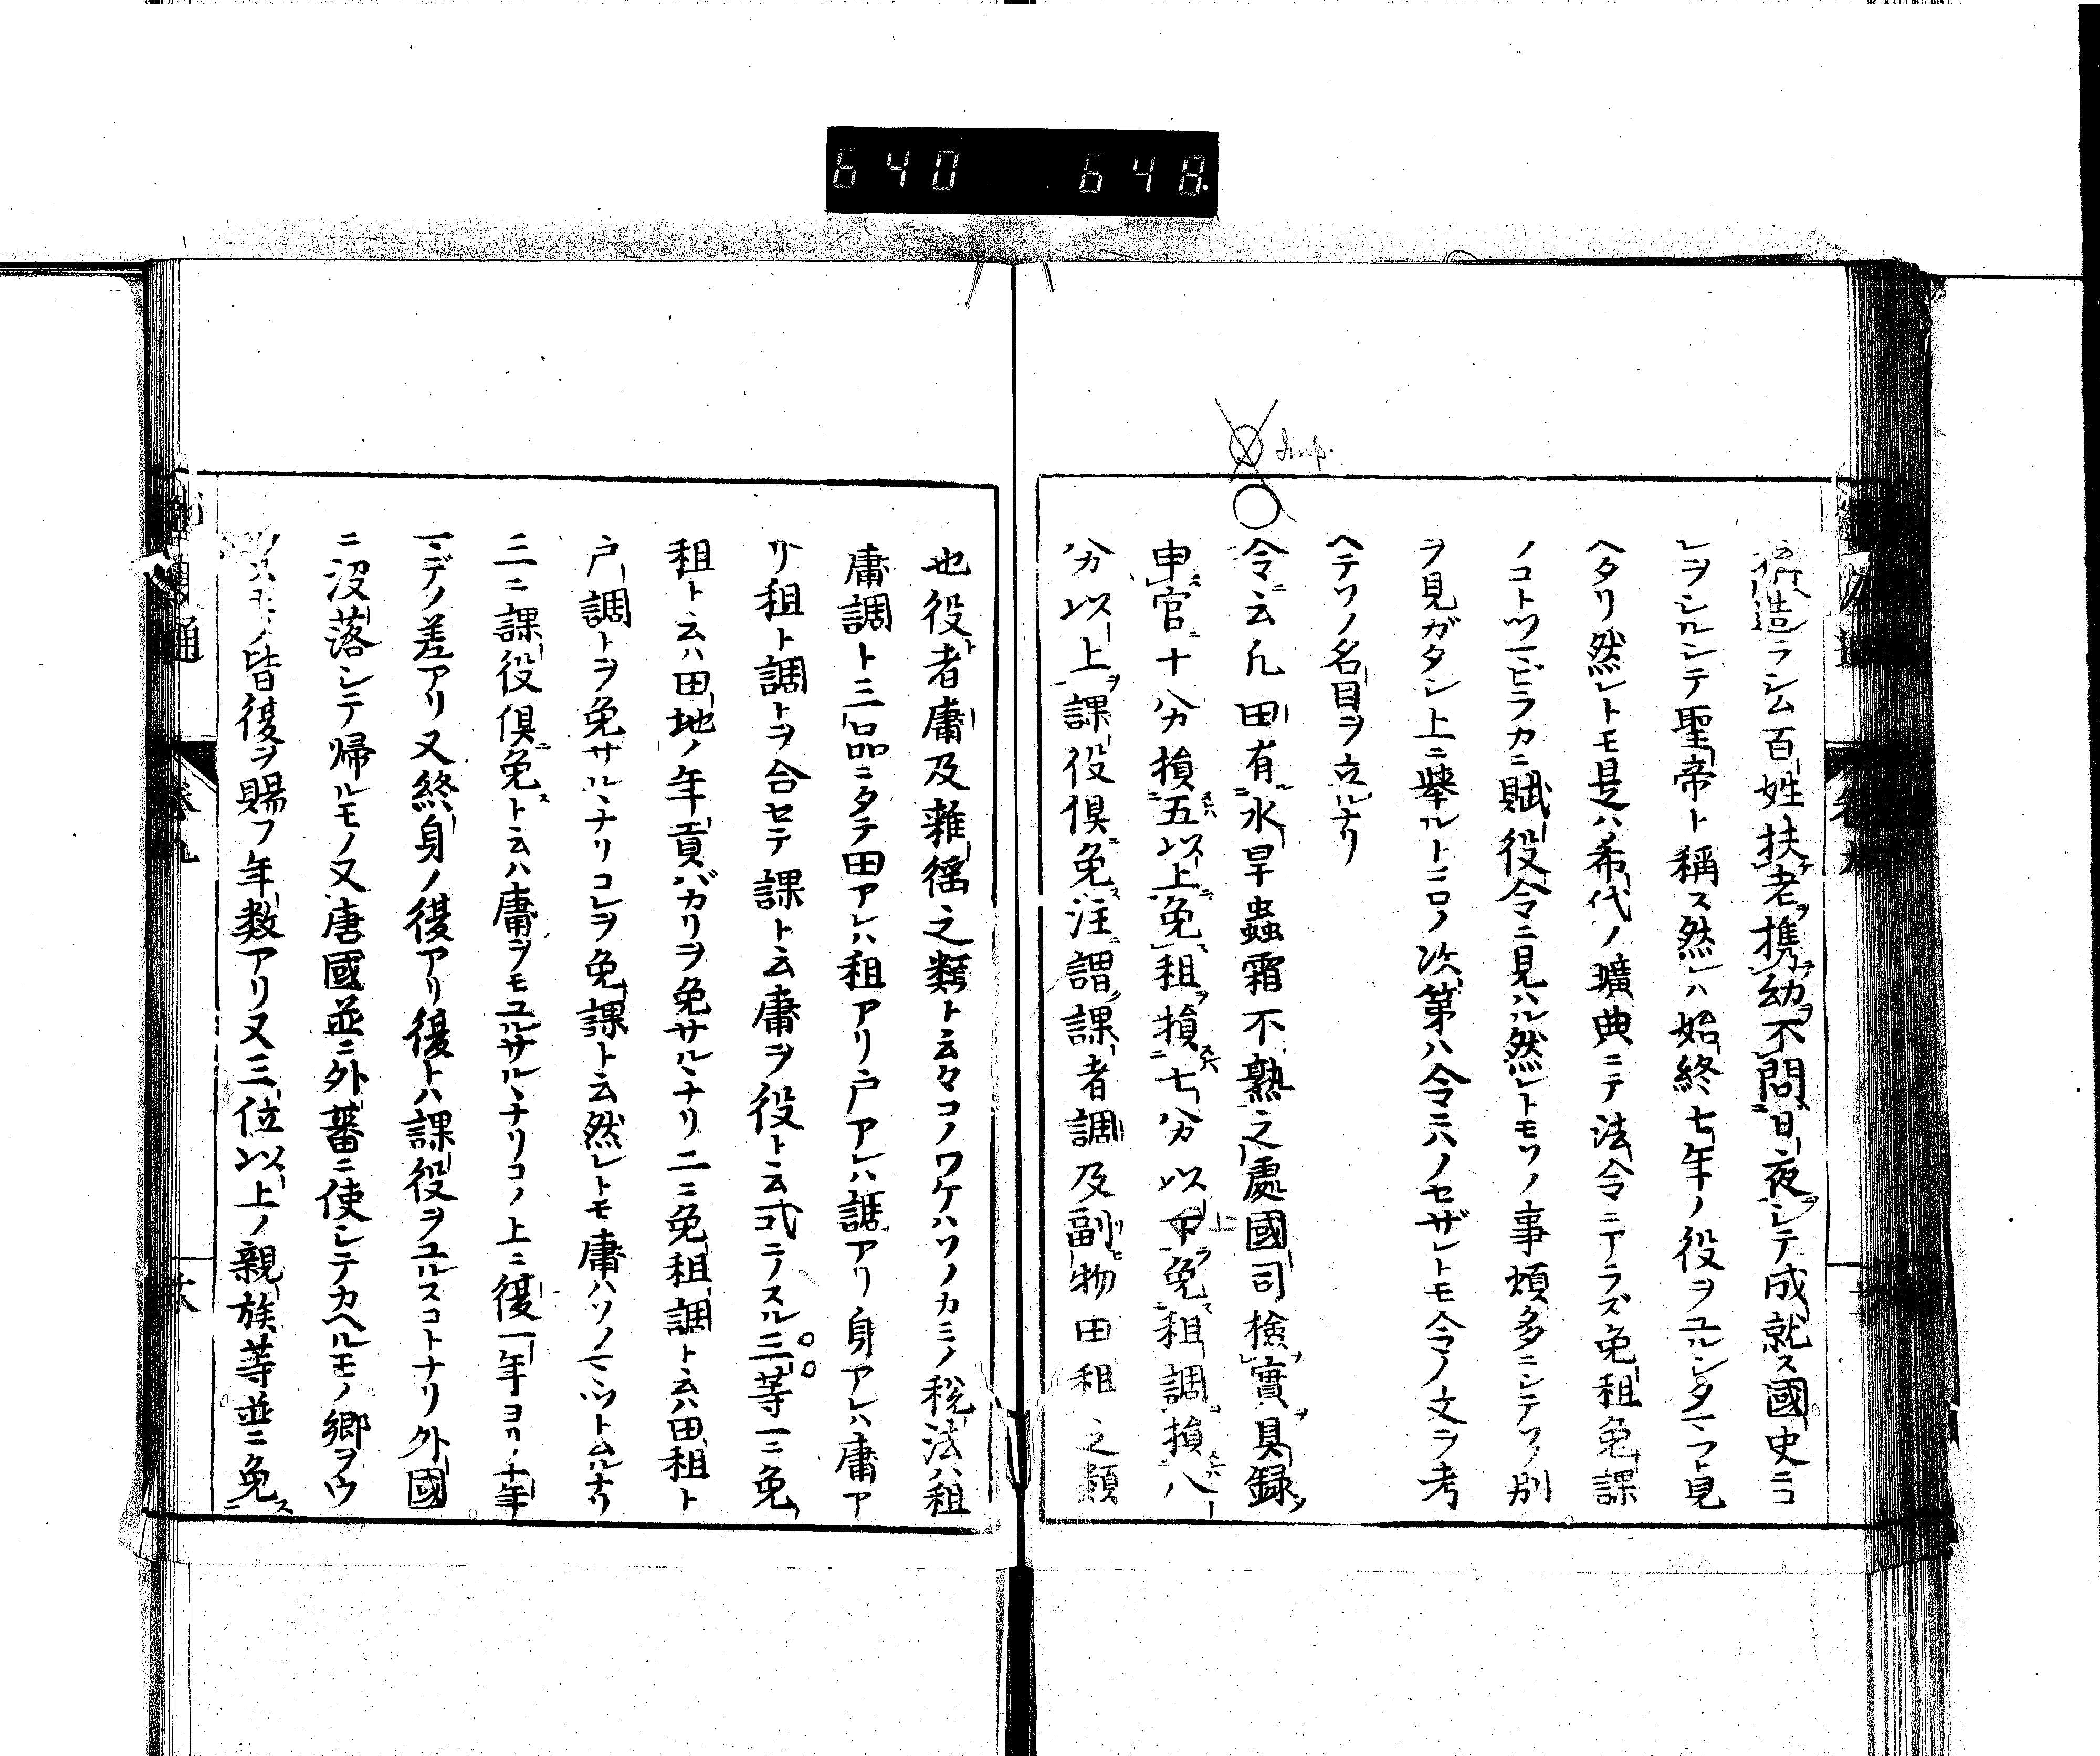 640 648
構造ラシム百姓扶老携幼不問日夜シテ成就ス國史ニコ
レヲシルシテ聖帝ト稱ス然レハ始終七年ノ役ヲユルシタマフト見
ヘタリ然レトモ是ハ希代ノ曠典ニテ法令ニアラズ免租免課
ノコトツマビラカニ賦役令ニ見ハル然レトモソノ事煩多ニシテソノ別
ヲ見ガタシ上ニ舉ルトコロノ次第ハ令ニハノセザレトモ令ノ文ヲ考
ヘテソノ名目ヲ立ルナリ
令ニ云凡田有水旱蟲霜不熟之處國司檢實具録
申官十分損五以上免租損七分以下免租調損八
分以上課役倶免注謂課者調及副物田租之類
也役者庸及雜徭之類ト云々コノワケハソノカミノ税法ハ租
庸調ト三品ニタテ田アレハ租アリ戸アレハ調アリ身アレハ庸ア
リ租ト調トヲ合セテ課ト云庸ヲ役ト云弐テスル三等一ニ免
租ト云ハ田地ノ年貢バカリヲ免サルヽナリ二ニ免租調ト云ハ田租ト
戸調トヲ免サルヽナリコレヲ免課ト云然レトモ庸ハソノマヽツトムルナリ
三ニ課役倶免ト云ハ庸ヲモユルサルヽナリコノ上ニ復一年ヨリ十年
マデノ差アリ又終身ノ復アリ復トハ課役ヲユルスコトナリ外國
ニ沒落シテ帰ルモノ又唐國並ニ外蕃ニ使シテカヘルモノ郷ヲウ
皆復ヲ賜フ年数アリ又三位以上ノ親族等並ニ免
通
巻九